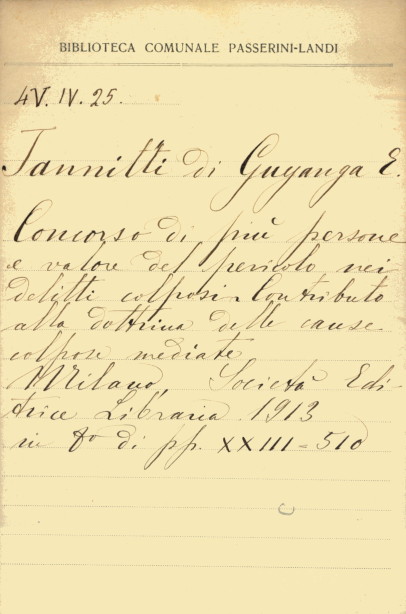 BIBLIOTECA COMUNALE PASSERINI-LANDI
4V. IV. 25.
Jannitti di Guyanga E.
Concorso di più persone
e valore del pericolo nei
delitti colposi - Contributo
alla dottrina delle cause
colpose mediate
Milano, Società Edi-
trice Libraria 1913
in 8° di pp. XXIII - 510